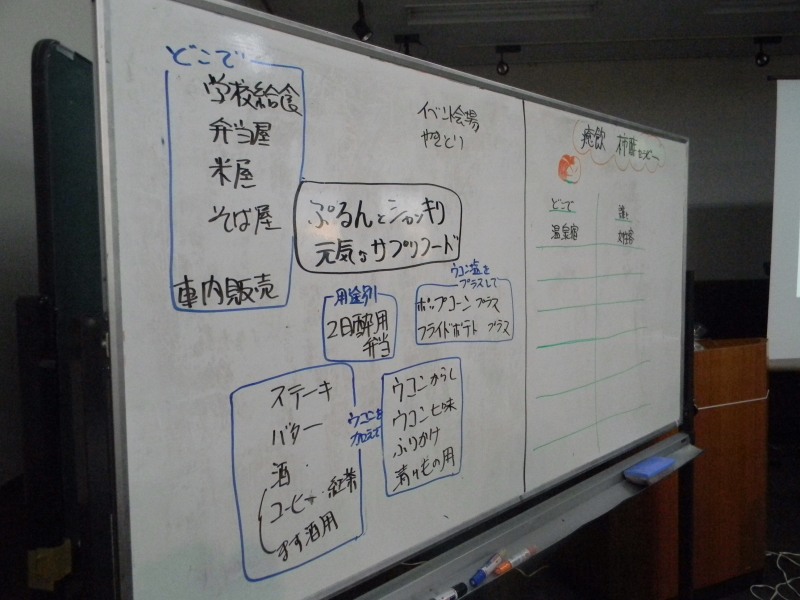 どこで
学校給食
弁当屋
米屋
そば屋
車内販売
イベント会場
やきとり
ぷるんとシャッキリ
元気なサプリフード
用途別
2日酔用
弁当
ウコン塩を
プラスして
ポップコーン プラス
フライドポテト プラス
ステーキ
バター
酒
コーヒー・紅茶
ます酒用
ウコンを
加えて
ウコンからし
ウコン七味
ふりかけ
漬けもの用
柿酢
どこで
誰と
温泉宿